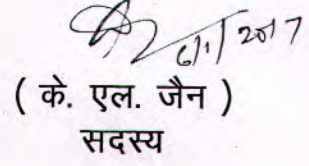 6/1/2017
( के. एल. जैन )
सदस्य